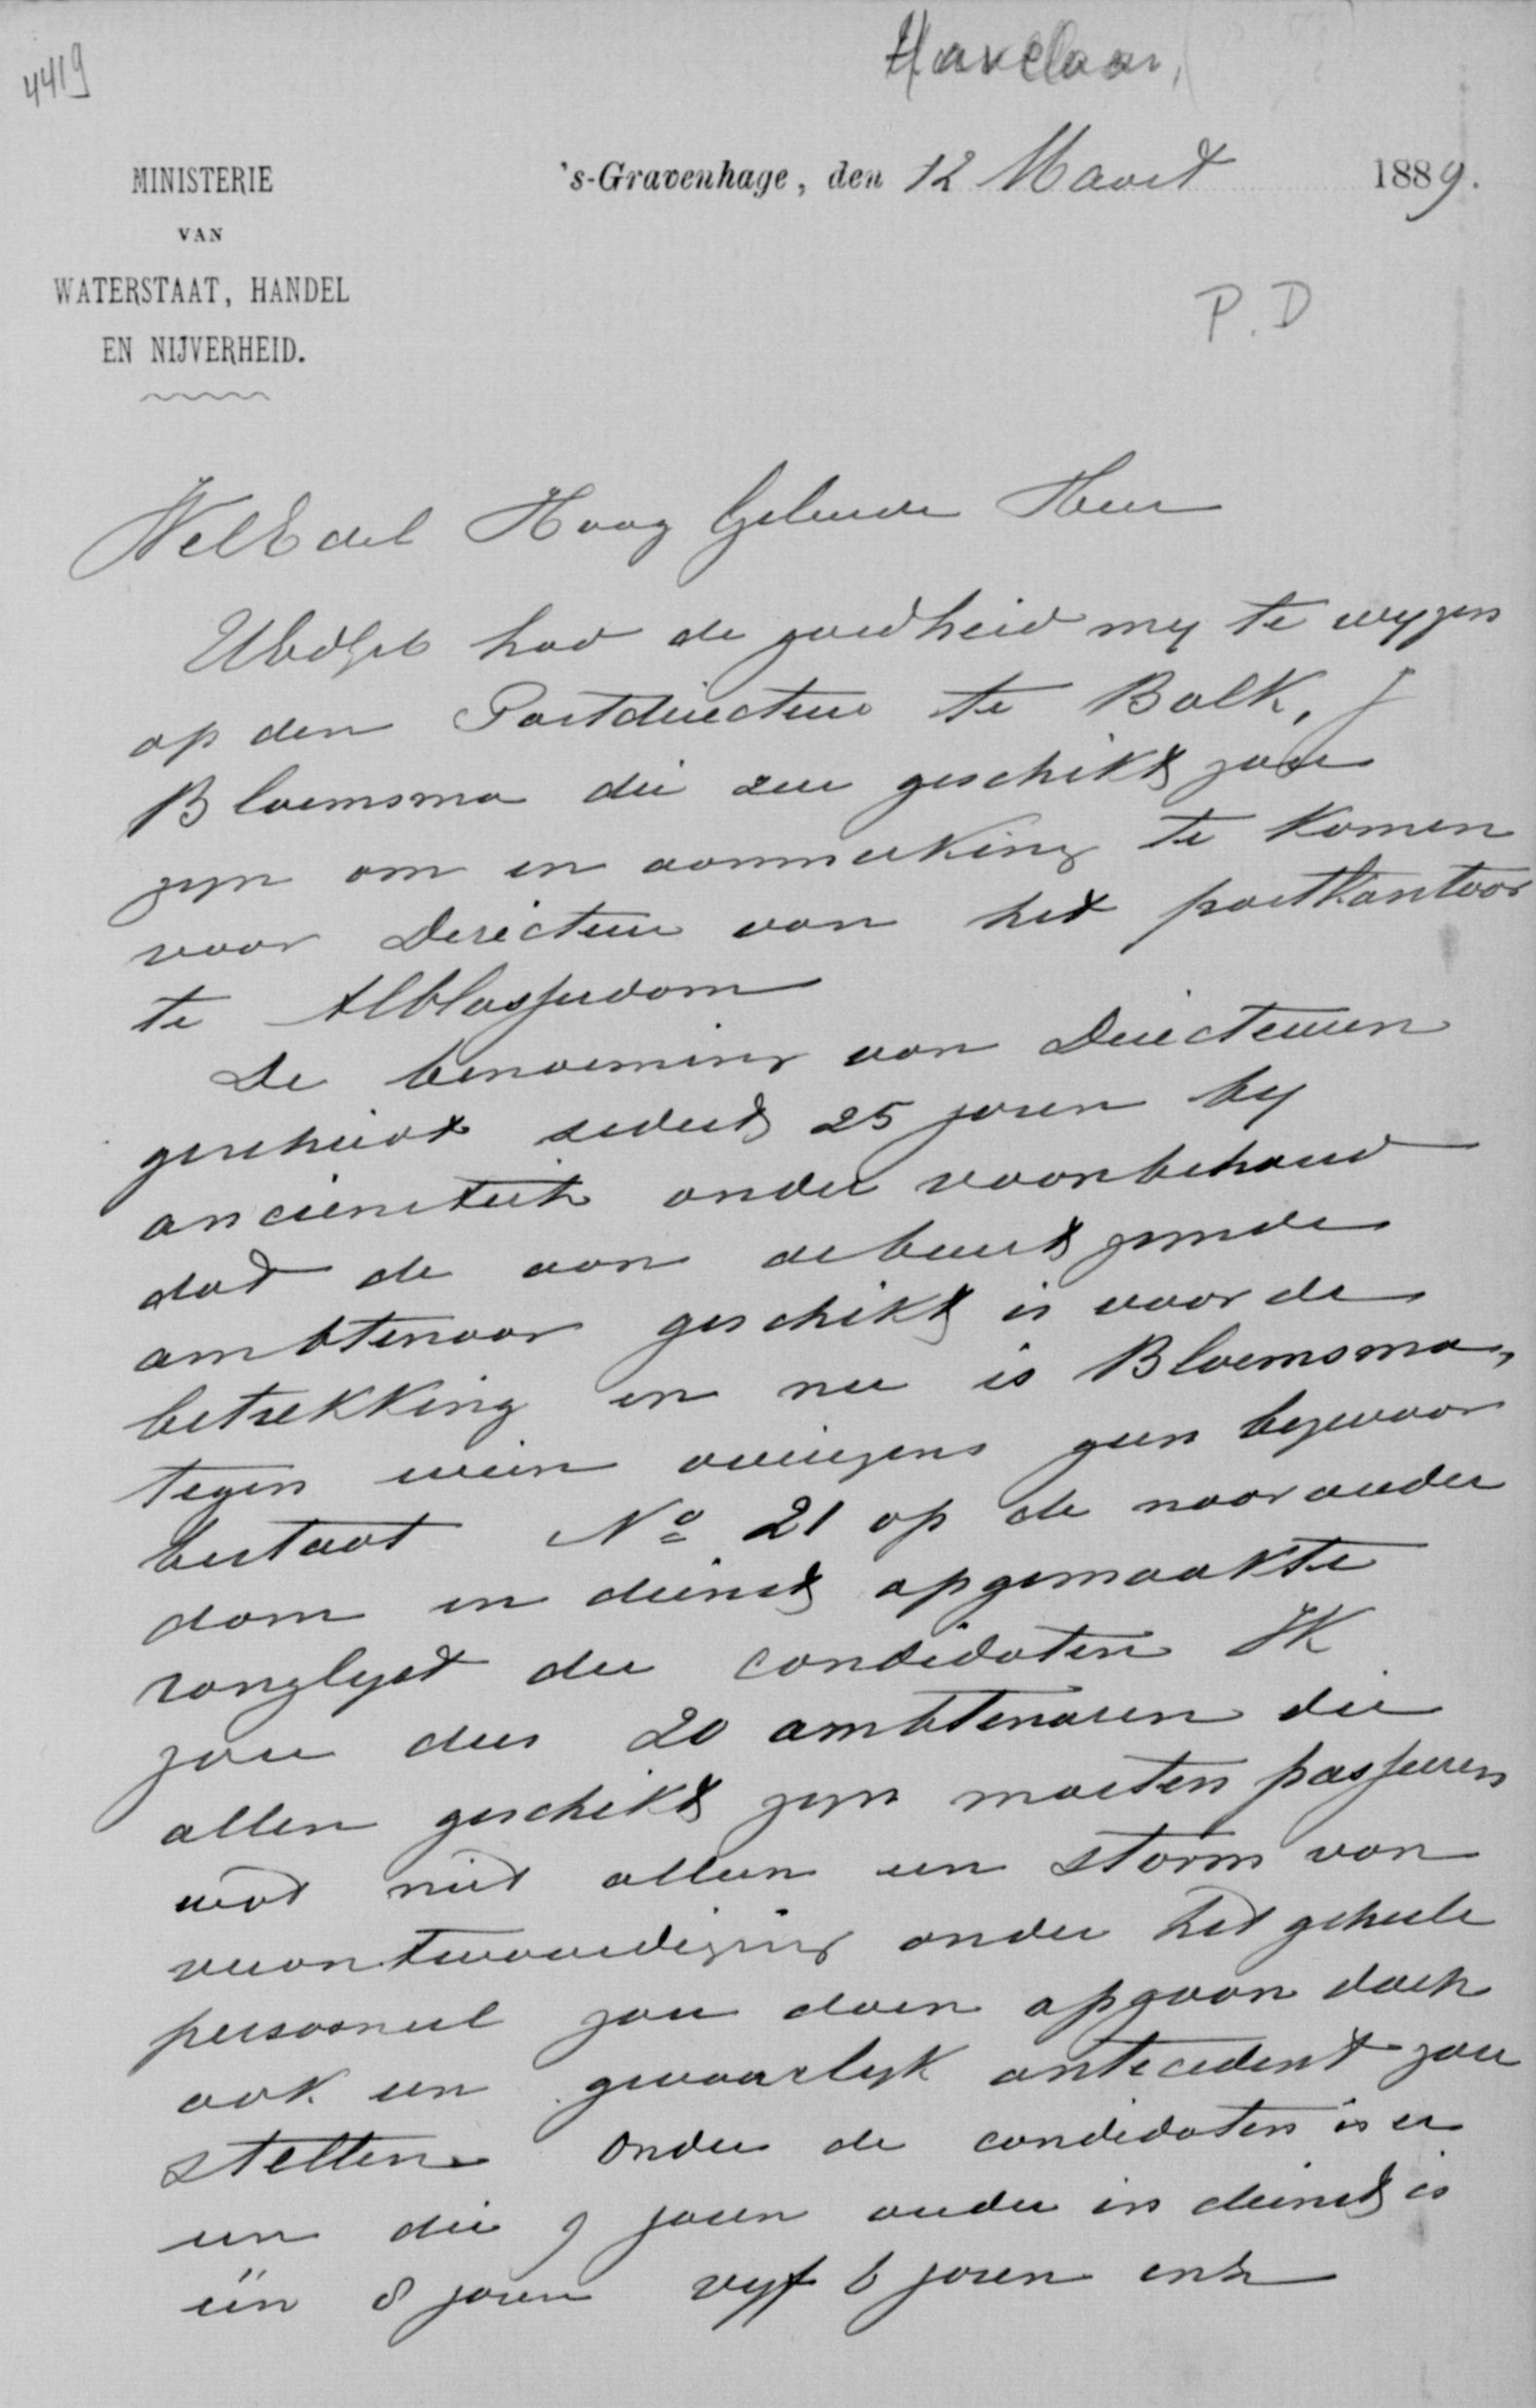 Havelaar,
4419
MINISTERIE
VAN
WATERSTAAT, HANDEL
EN NIJVERHEID.
's-Gravenhage, den 12 Maart 1889.
P.D
WelEdel Hoog Geleerde Heer
UEdGeb had de goedheid my te wyzen
op den Postdirecteur te Balk, J
Bloemsma die zeer geschikt zou
zyn om in aanmerking te komen
voor Directeur van het postkantoor
te Alblasserdam
De benoeming van Directeuren
geschiedt sedert 25 jaren by
ancieniteit onder voorbehoud
dat de aan de beurt zynde
ambtenaar geschikt is voor de
betrekking en nu is Bloemsma,
tegen wien overigens geen bezwaar
bestaat No 21 op de naar ouder
dom in dienst opgemaakte
ranglyst der candidaten Ik
zou dus 20 ambtenaren die
allen geschikt zyn moeten passeeren
wat niet alleen een storm van
verontwaardiging onder het geheele
personeel zou doen opgaan doch
ook een gevaarlyk antecedent zou
stellen Onder de candidaten is er
een die 9 jaren ouder in dienst is
één 8 jaren vyf 6 jaren enz